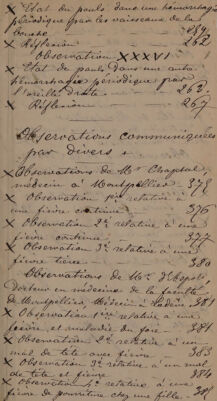 × Etat du pouls dans une hémorrhagie
périodique par les vaisseaux de la
bouche 259
× Réflexion 262
Observation XXXVI
× Etat du pouls dans un autre
hémorrhagie périodique par
l'oreille droite 262
× Réflexion 267
Observations communiquées
par divers
× Observations de Mr Chaptal,
médecin à Montpellier 375
× Observation 1re relative à
une fièvre continue 376
× Observation 2e relative à une
fièvre continue 377
× Observation 3e relative à une
fièvre tierce 380
Observations de Mr
Docteur en médecine de la faculté
de Montpellier, Médecin à 381
× Observation 1ère relative à une
fièvre et maladie du foie 381
× Observation 2e relative à un
mal de tête avec fièvre 383
× Observation 3e relative à un mal
de tête et fièvre 384
× Observation 4e relative à une
fièvre de pourriture chez une fille